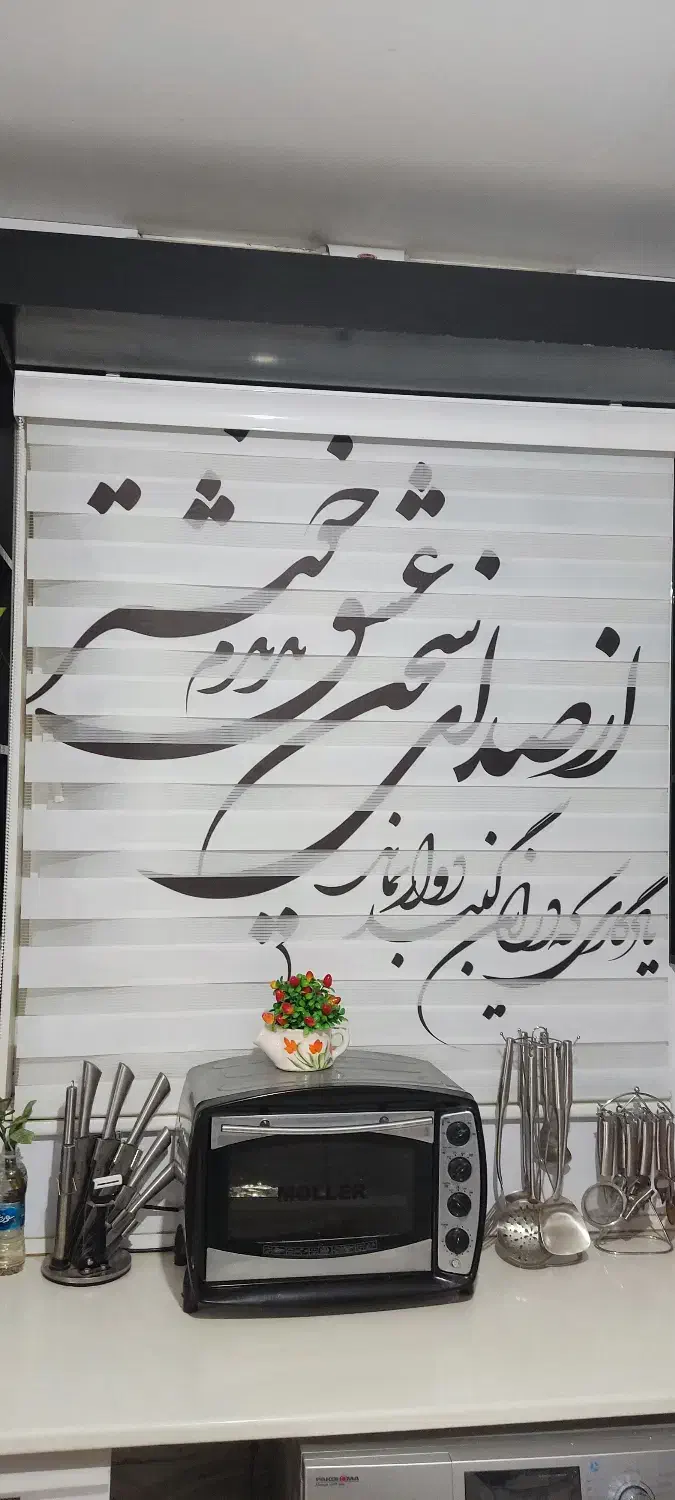 از صدای سخن عشق ندیدم خوشتر
یادگاری که در این گنبد دوار بماند
MOLLER